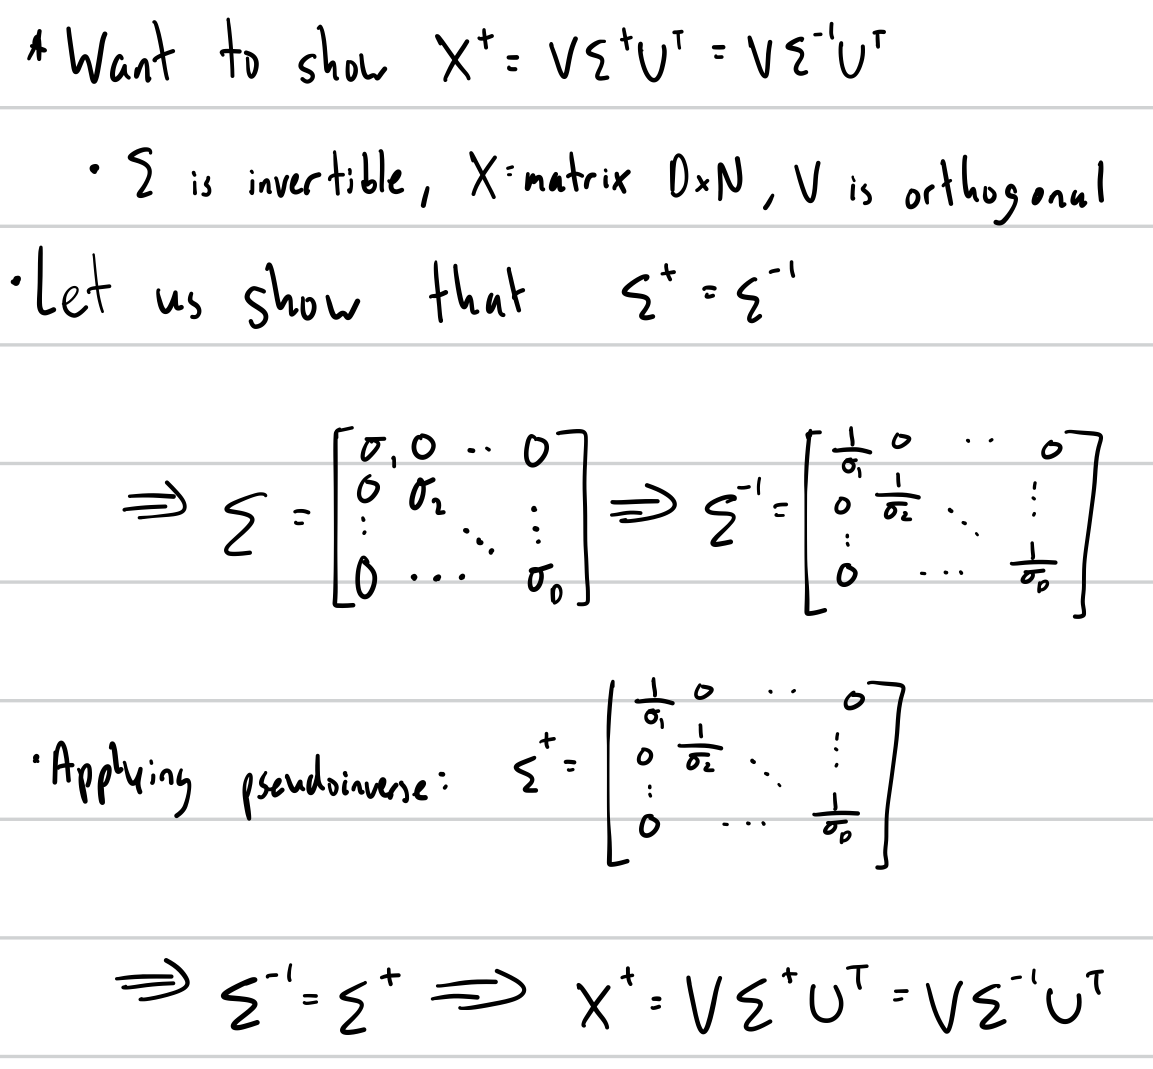 * Want to show X⁺ = VΣ⁺Uᵀ = VΣ⁻¹Uᵀ
• Σ is invertible, X = matrix D×N, V is orthogonal
• Let us show that Σ⁺ = Σ⁻¹
⇒ Σ = [σ₁ 0 ·· 0; 0 σ₂ ⋮; ⋮ ⋱ ⋮; 0 ··· σ_D] ⇒ Σ⁻¹ = [1/σ₁ 0 ·· 0; 0 1/σ₂ ⋱ ⋮; ⋮; 0 ··· 1/σ_D]
• Applying pseudoinverse: Σ⁺ = [1/σ₁ 0 ·· 0; 0 1/σ₂ ⋱ ⋮; ⋮; 0 ··· 1/σ_D]
⇒ Σ⁻¹ = Σ⁺ ⇒ X⁺ = VΣ⁺Uᵀ = VΣ⁻¹Uᵀ